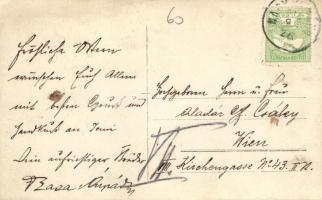 60
Fröhliche Ostern
wünschen Euch Allen
mit besten Gruss und
Handkuss an Irmi
Dein aufrichtiger Bruder
Árpád
Hochgeboren Herrn u. Frau
Aladár
Wien
VII
Kirchengasse No 43. II